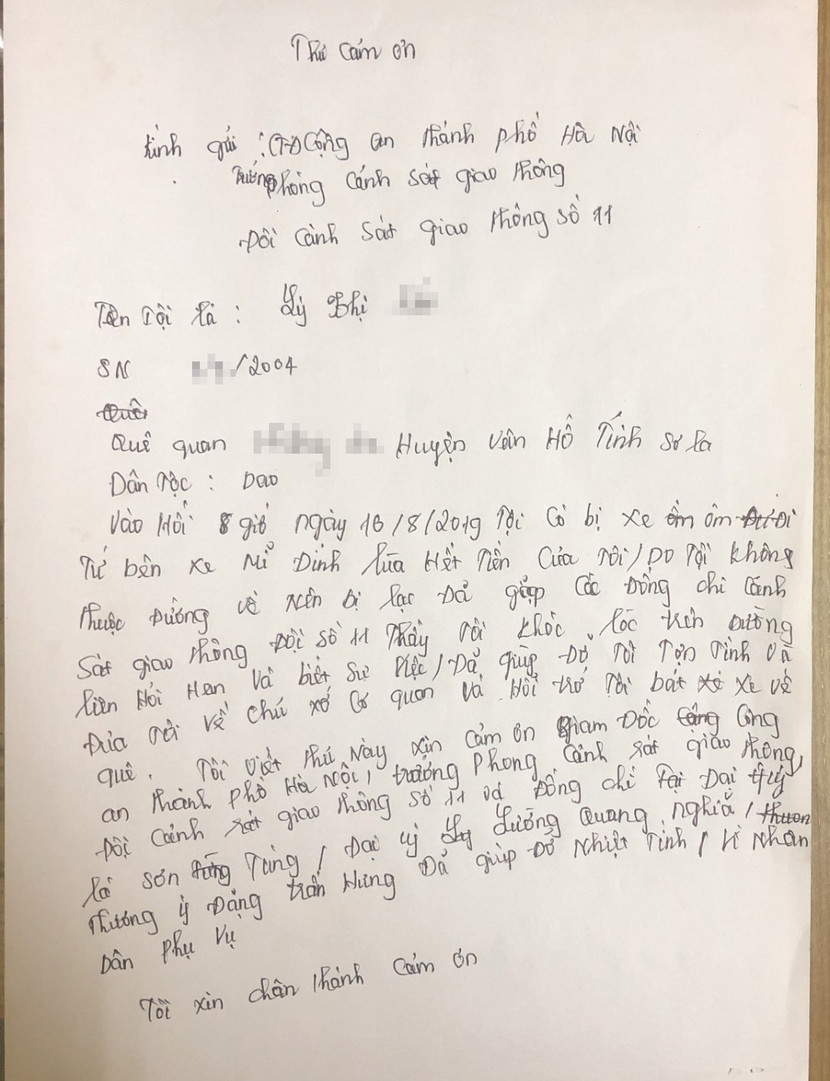 Thư Cám ơn
kính gửi : GĐ Công an thành phố Hà Nội
Trưởng phòng Cảnh sát giao thông
Đội Cảnh sát giao thông số 11
Tên Tôi là : Lý Thị
SN /2004
Quê quan Huyện Vân Hồ Tỉnh Sơ la
Dân Tộc : Dao
Vào Hồi 8 giờ ngày 16/8/2019 Tôi Có bị xe ôm
Từ bến xe Mĩ Đình Lừa Hết Tiền Của Tôi / Do Tôi không
thuộc Đường về Nên bị lạc Đã gặp Các Đồng chí Cảnh
Sát giao thông Đội số 11 Thấy Tôi khóc lóc trên Đường
liên Hỏi Han Và biết Sự Việc / Đã giúp Đỡ Tôi Tận Tình Và
Đưa Tôi Về Cơ quan Và Hỗi trợ Tôi bắt xe Về
quê. Tôi Viết thư Này xin Cảm ơn Giam Đốc Công
an thành phố Hà Nội, trưởng Phong Cảnh sát giao thông,
Đội Cảnh sát giao thông số 11 và Đồng chí Đại úy
là Sơn Tùng / Đại úy Lương Quang Nghĩa /
Thương ý Đặng trần Hưng Đã giúp Đỡ Nhiệt Tình / Vì Nhân
Dân Phụ Vụ
Tôi xin chân thành Cảm ơn